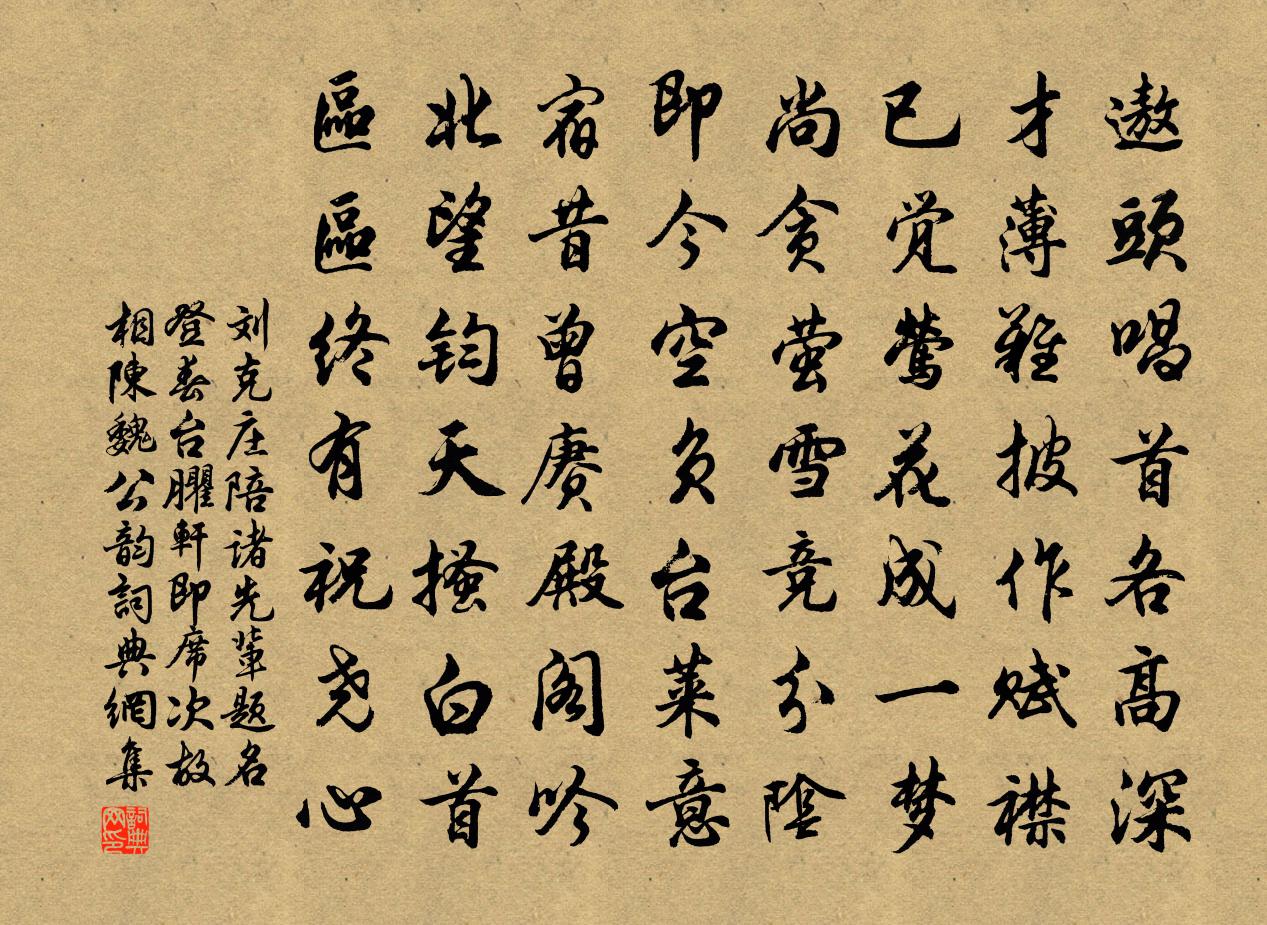 遨頭唱首各高深
才薄難披作賦襟
已觉鶯花成一梦
尚贪萤雪竞分陰
即今空负台莱意
宿昔曾赓殿阁吟
北望钧天搔白首
區區终有祝尧心
刘克庄陪诸先辈题名
登春台臞軒即席次故
相陳魏公韵詞典網集
詞典网印